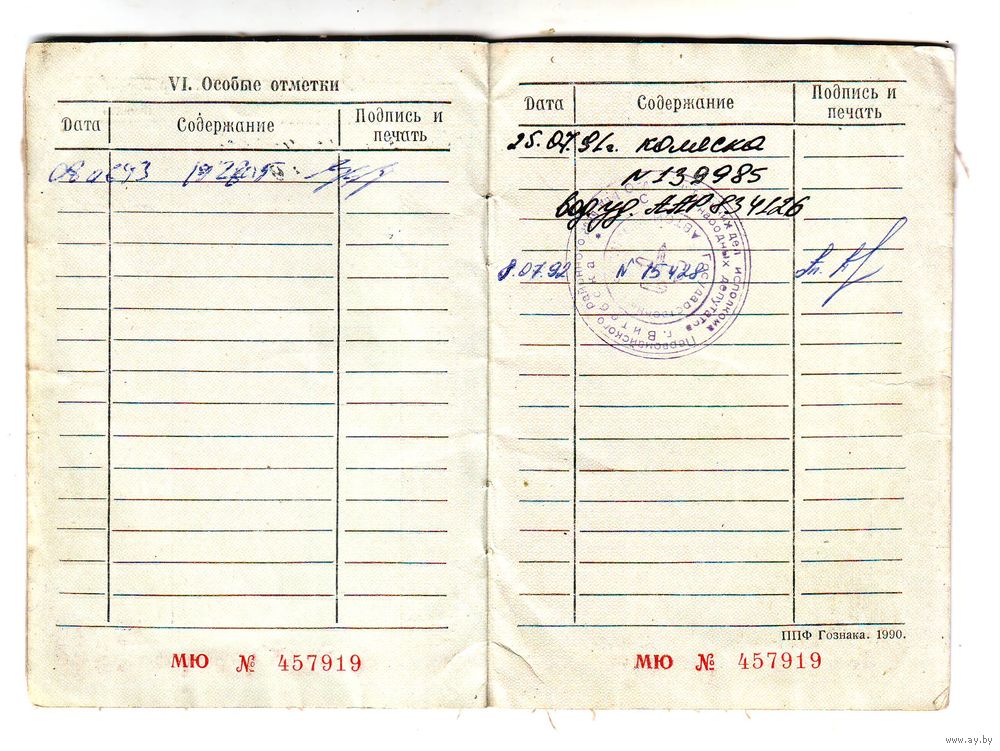 VI. Особые отметки
Дата Содержание Подпись и печать
МЮ № 457919
Дата Содержание Подпись и печать
25.07.91г. коляска
№139985
вод.уд. ААР 834126
8.07.92 №15428
Первомайского
г. Витебска
народных депутатов
исполкома
ППФ Гознака. 1990.
МЮ № 457919
www.ay.by